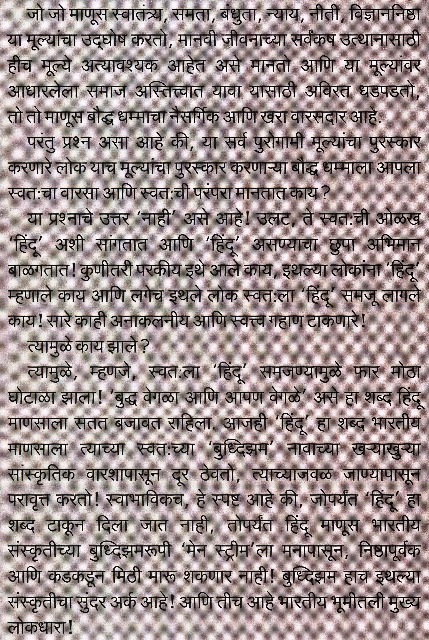 जो जो माणूस स्वातंत्र्य, समता, बंधुता, न्याय, नीती, विज्ञाननिष्ठा
या मूल्यांचा उद्घोष करतो, मानवी जीवनाच्या सर्वंकष उत्थानासाठी
हीच मूल्ये अत्यावश्यक आहेत असे मानतो आणि या मूल्यावर
आधारलेला समाज अस्तित्वात यावा यासाठी अविरत धडपडतो,
तो तो माणूस बौद्ध धम्माचा नैसर्गिक आणि खरा वारसदार आहे.
परंतु प्रश्न असा आहे की, या सर्व पुरोगामी मूल्यांचा पुरस्कार
करणारे लोक याच मूल्यांचा पुरस्कार करणाऱ्या बौद्ध धम्माला आपला
स्वत:चा वारसा आणि स्वत:ची परंपरा मानतात काय?
या प्रश्नाचे उत्तर 'नाही' असे आहे! उलट, ते स्वत:ची ओळख
'हिंदू' अशी सांगतात आणि 'हिंदू' असण्याचा छुपा अभिमान
बाळगतात! कुणीतरी परकीय इथे आले काय, इथल्या लोकांना 'हिंदू'
म्हणाले काय आणि लगेच इथले लोक स्वत:ला 'हिंदू' समजू लागले
काय! सारे काही अनाकलनीय आणि स्वत्त्व गहाण टाकणारे!
त्यामुळे काय झाले?
त्यामुळे, म्हणजे, स्वत:ला 'हिंदू' समजण्यामुळे फार मोठा
घोटाळा झाला! 'बुद्ध वेगळा आणि आपण वेगळे' असे हा शब्द हिंदू
माणसाला सतत बजावत राहिला. आजही 'हिंदू' हा शब्द भारतीय
माणसाला त्याच्या स्वत:च्या 'बुध्दिझम' नावाच्या खऱ्याखुऱ्या
सांस्कृतिक वारशापासून दूर ठेवतो, त्याच्याजवळ जाण्यापासून
परावृत्त करतो! स्वाभाविकच, हे स्पष्ट आहे की, जोपर्यंत 'हिंदू' हा
शब्द टाकून दिला जात नाही, तोपर्यंत हिंदू माणूस भारतीय
संस्कृतीच्या बुध्दिझमरूपी 'मेन स्ट्रीम'ला मनापासून, निष्ठापूर्वक
आणि कडकडून मिठी मारू शकणार नाही! बुध्दिझम हाच इथल्या
संस्कृतीचा सुंदर अर्क आहे! आणि तीच आहे भारतीय भूमीतली मुख्य
लोकधारा!